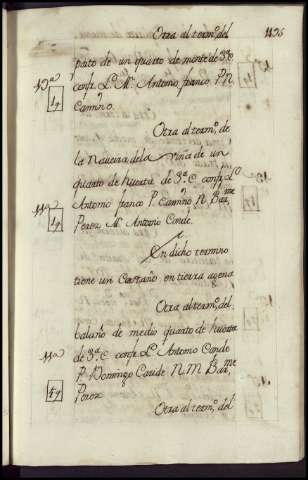 1196
Otra al term.º del
prato de un quarto de monte de 3.ª C
conf. L. M.n Antonio franco P. N
Camiño.
Otra al term.º de
la Naveira dela Viña de un
quarto de huerta de 3.ª C conf. L.º
Antonio franco P. Camiño N. Bar.me
Perez M. Antonio Conde.
En dicho termino
tiene un Castaño en tierra agena
Otra al term.º del
balaño de medio quarto de huerta
de 3.ª C conf. L.º Antonio Conde
P. Domingo Caride N. M. Bar.me
Perez
Otra al term.º del